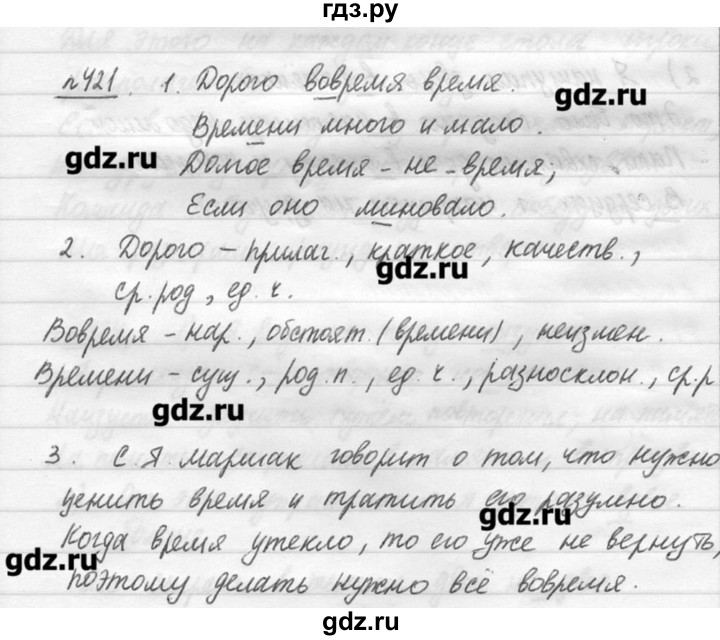 гдз.ру
№421. 1. Дорого вовремя время.
gdz.ru
Времени много и мало.
gdz.ru
Долгое время - не - время,
Если оно миновало.
2. Дорого - прилаг., краткое, качеств.,
gdz.ru
ср. род, ед. ч.
Вовремя - нар., обстоят. (времени), неизмен.
Времени - сущ., род. п., ед. ч., разносклон., ср. р
gdz.ru
3. С.Я маршак говорит о том, что нужно
ценить время и тратить его разумно.
gdz.ru
Когда время утекло, то его уже не вернуть,
gdz.ru
поэтому делать нужно всё вовремя.
gdz.ru